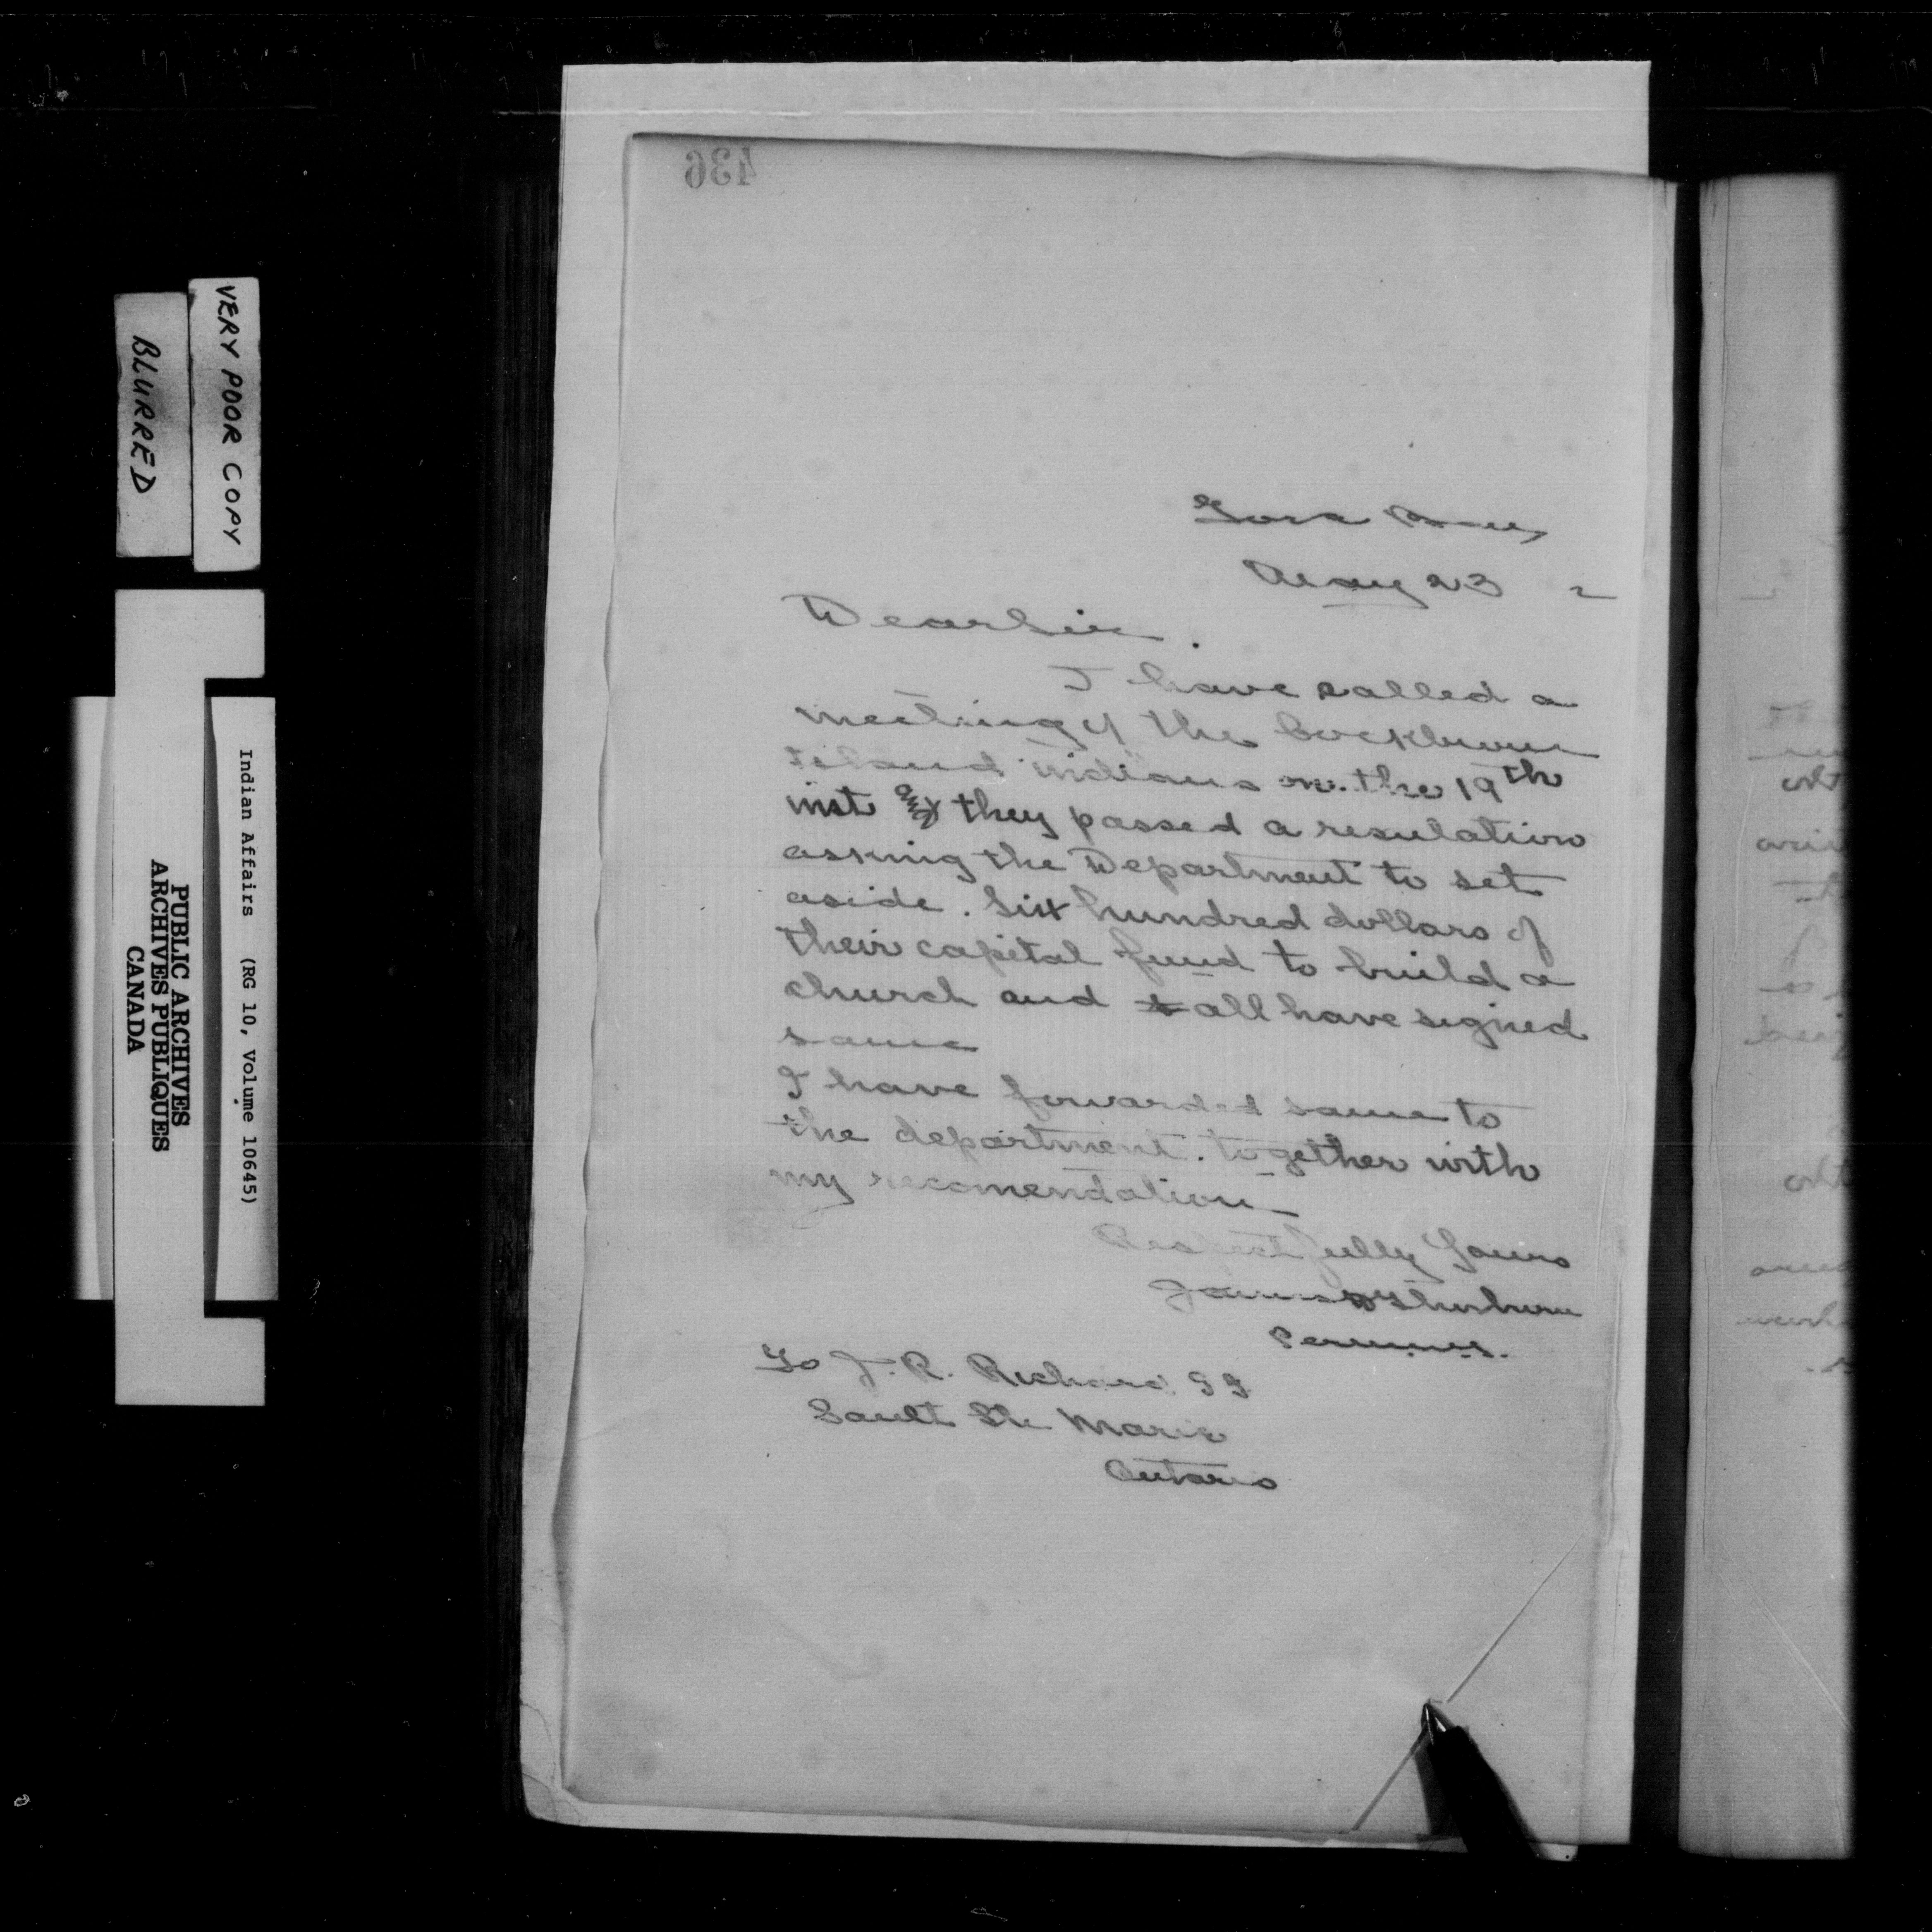 436
Gore Bay
May 23 2
Dear Sir.
I have called a
meeting of the Cockburn
Island indians on the 19th
inst and they passed a resulation
asking the Department to set
aside. Six hundred dollars of
their capital fund to build a
church and all have signed
same
I have forwarded same to
the department. together with
my recomendation
Respectfully Yours
James H Thorburn
To J. R. Richard
Sault Ste Marie
Ontario
VERY POOR COPY
BLURRED
Indian Affairs (RG 10, Volume 10645)
PUBLIC ARCHIVES
ARCHIVES PUBLIQUES
CANADA